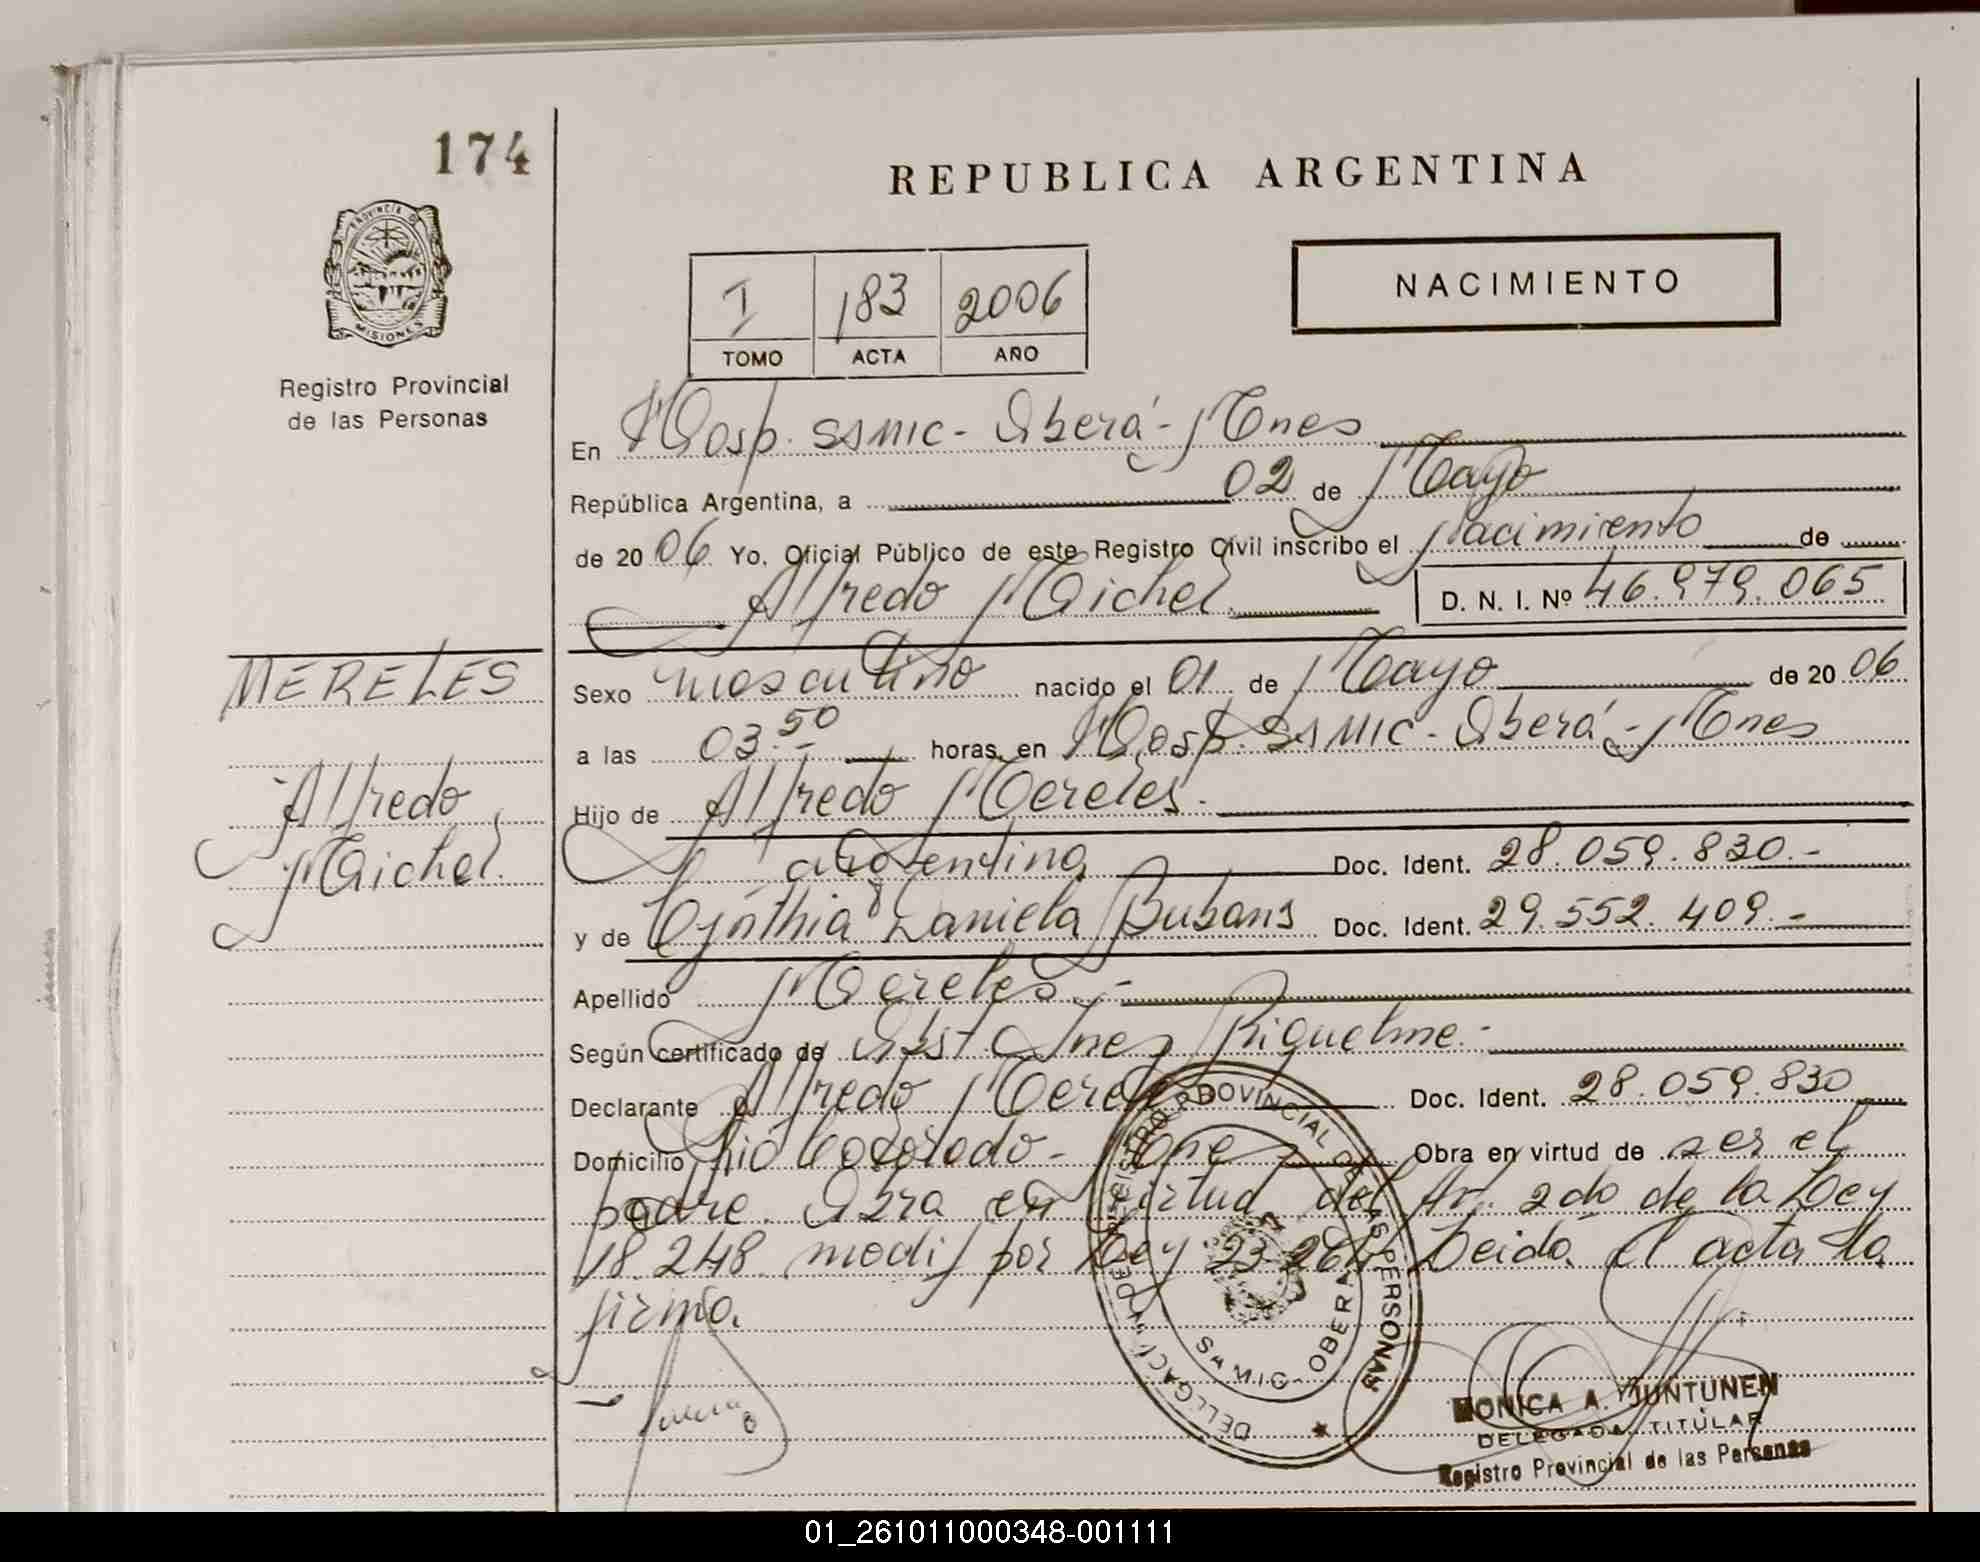 174
REPUBLICA ARGENTINA
PROVINCIA D
MISIONES
Registro Provincial
de las Personas
I 183 2006
TOMO ACTA AÑO
NACIMIENTO
En Hosp. SSMIC - Oberá - Mnes
República Argentina, a 02 de Mayo
de 20 06 Yo, Oficial Público de este Registro Civil inscribo el Nacimiento de
Alfredo Michel D. N. I. Nº 46.979.065
MERELES
Alfredo
Michel.
Sexo masculino nacido el 01 de Mayo de 20 06
a las 03.50 horas, en Hosp. SSMIC - Oberá - Mnes
Hijo de Alfredo Mereles.
argentina Doc. Ident. 28.059.830.-
y de Cynthia Daniela Bubans Doc. Ident. 29.552.409.-
Apellido Mereles.-
Según certificado de Obst Ines Riquelme.-
Declarante Alfredo Mereles Doc. Ident. 28.059.830
Domicilio Colorado - Mnes Obra en virtud de ser el
padre. Obra en virtud del Art. 2do de la Ley
18.248 modif por Ley 23.264 Leida el acta la
firma.
REGISTRO PROVINCIAL DE LAS PERSONAS
OBERA
MONICA A. JUNTUNEN
DELEGADA TITULAR
Registro Provincial de las Personas
01_261011000348-001111